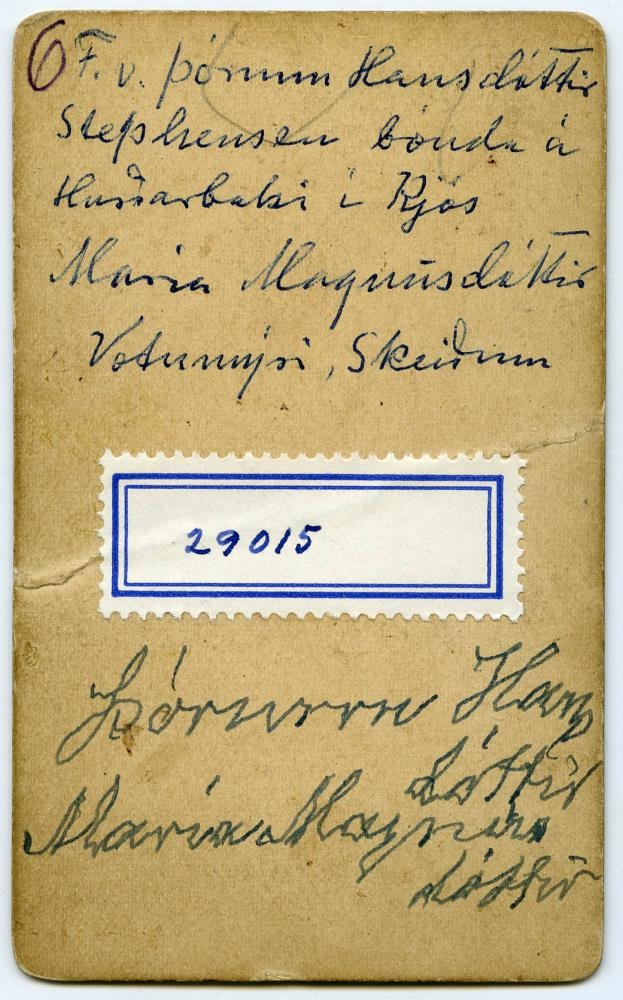 6 F. v. Þórunn Hansdóttir
Stephensen bónda á
Hurðarbaki í Kjós
María Magnúsdóttir
Votumýri, Skeiðum
29015
Þórunn Hans
dóttir
María Magnús
dóttir